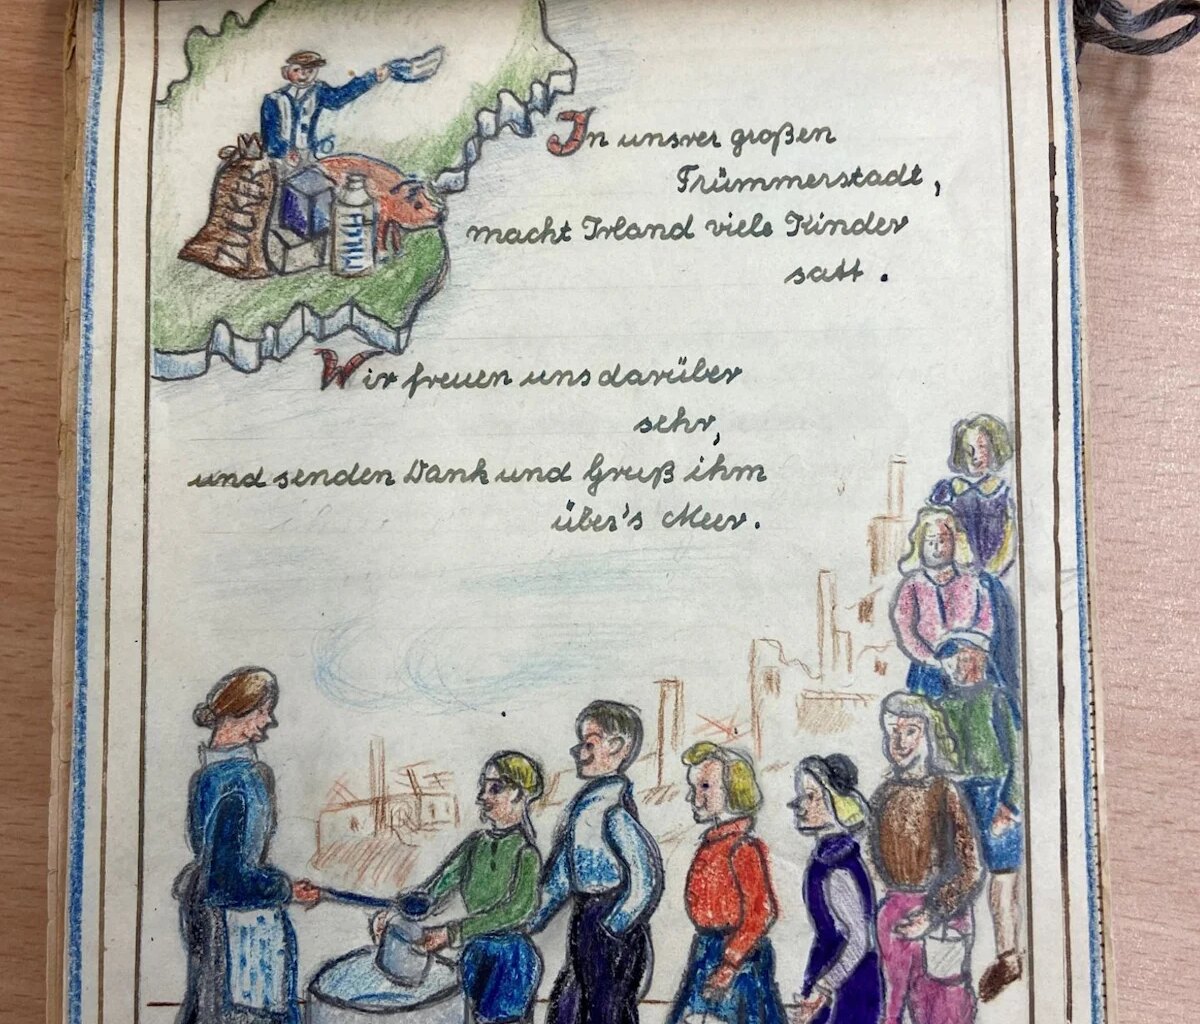 ZUCKER
MILCH
In unsrer großen
Trümmerstadt,
macht Irland viele Kinder
satt.
Wir freuen uns darüber
sehr,
und senden Dank und Gruß ihm
über's Meer.